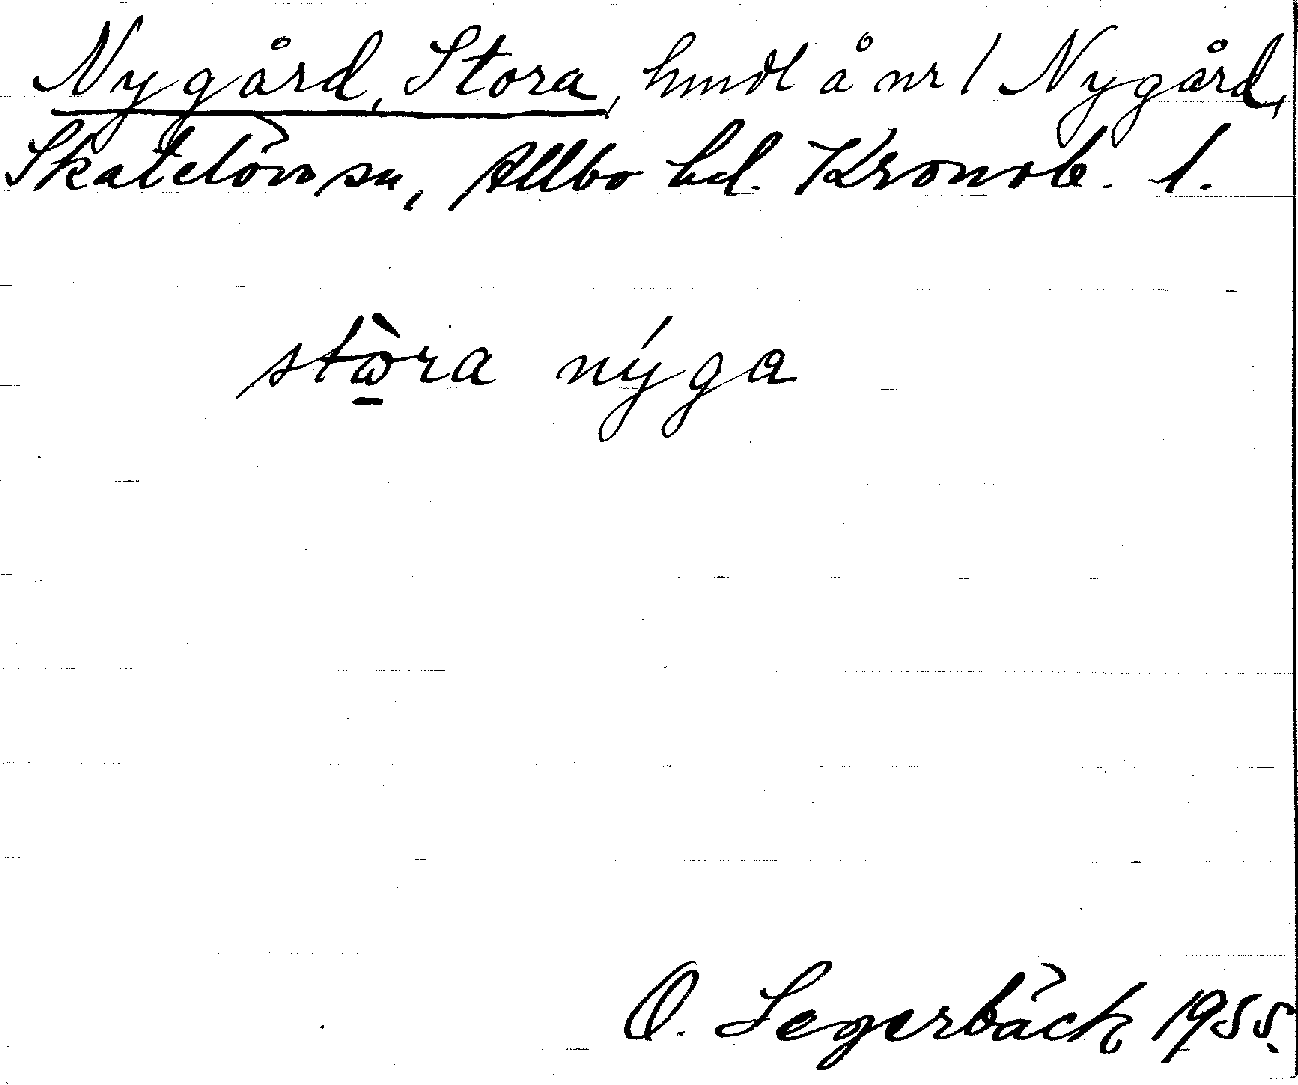 Nygård, Stora, hmdl å nr 1 Nygård,
Skatelövs sn, Allbo hd. Kronob. l.
stωra nýga
O. Segerbäck 1955.